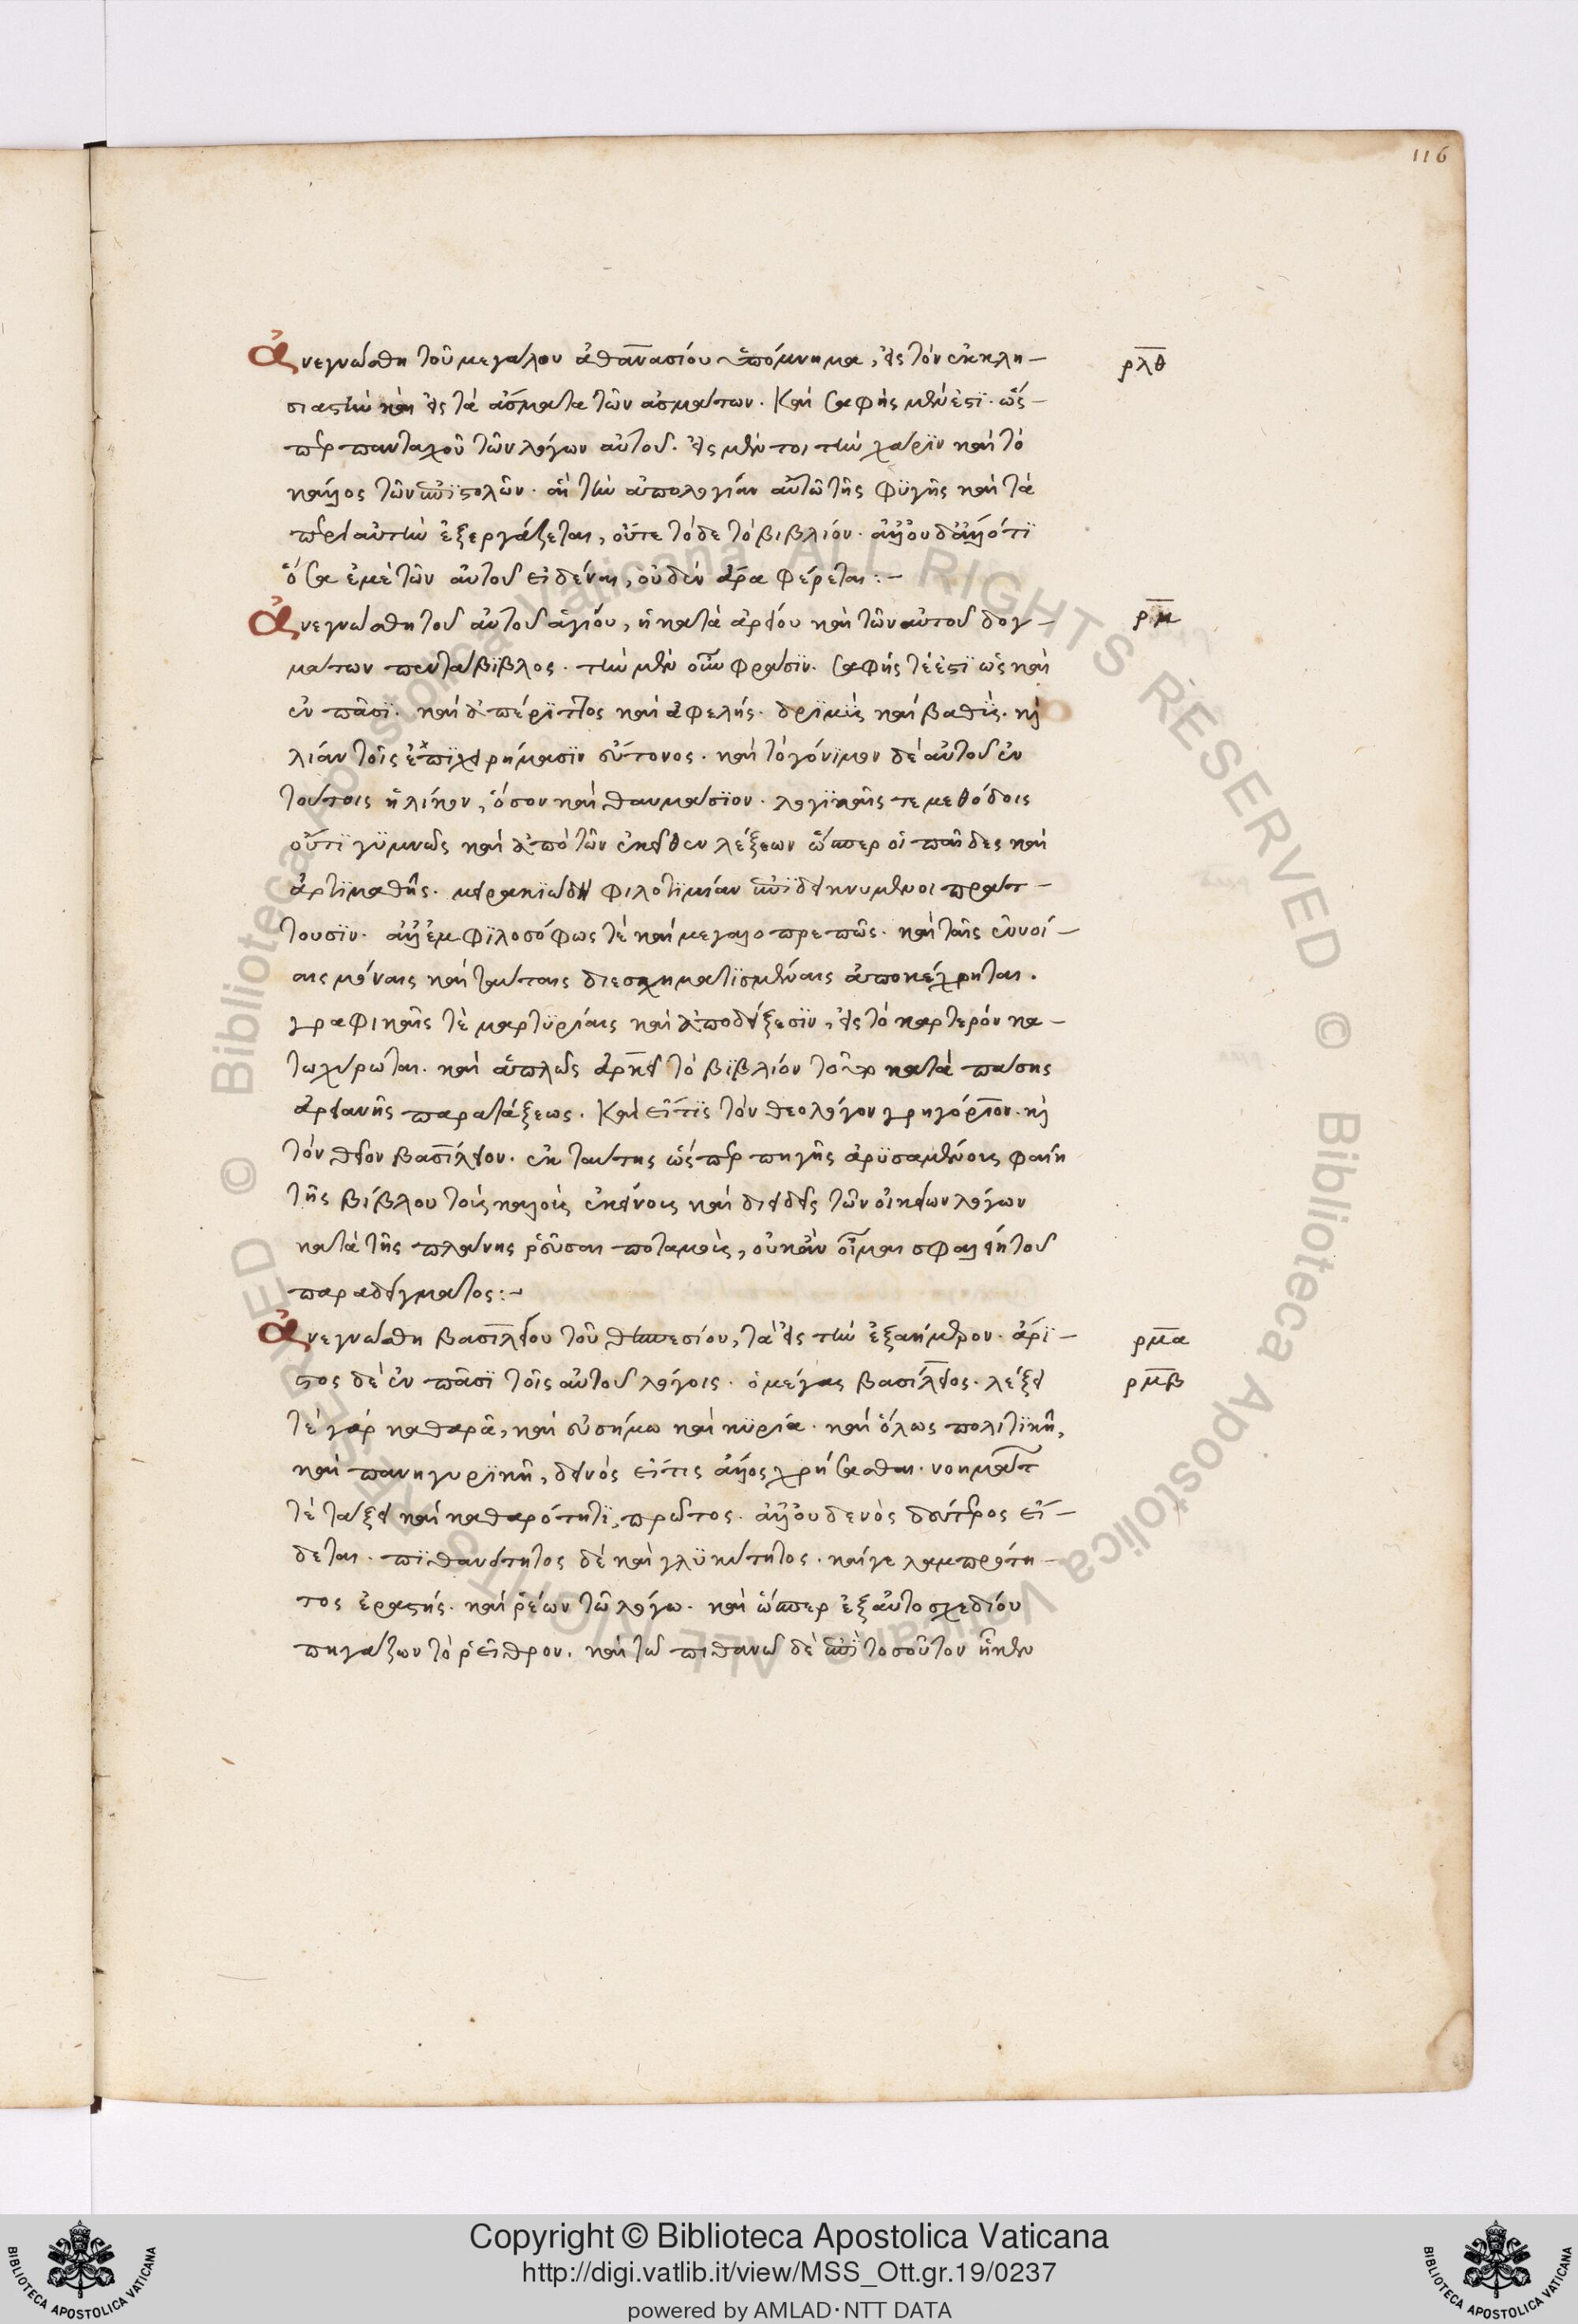 116
ἀνεγνώσθη τοῦ μεγάλου ἀθανασίου ὑπόμνημα, εἰς τὸν ἐκκλη- ρλθ
σιαστὴν καὶ εἰς τὰ ἄσματα τῶν ἀσμάτων. Καὶ σαφὴς μέν ἐστι. ὥς-
περ πανταχοῦ τῶν λόγων αὐτοῦ. εἰς μέν τοι τὴν χάριν καὶ τὸ
κάλλος τῶν ἐπιστολῶν. αἳ τὴν ἀπολογίαν αὐτῶ τῆς φυγῆς καὶ τὰ
περὶ αὐτὴν ἐξεργάζεται, οὔτε τόδε τὸ βιβλίον. ἀλλ' οὐδ' ἄλλό τι
ὅσα ἐμὲ τῶν αὐτοῦ εἰδέναι, οὐδὲν ἄρα φέρεται:-
ἀνεγνώσθη τοῦ αὐτοῦ ἁγίου, ἡ κατὰ ἀρείου καὶ τῶν αὐτοῦ δογ- ρμ
μάτων πεντάβιβλος. τὴν μὲν οὖν φράσιν. σαφής τέ ἐστι ὡς καὶ
ἐν πᾶσι. καὶ ἀπέριττος καὶ ἀφελής. δριμὺς καὶ βαθύς. καὶ
λίαν τοῖς ἐπιχειρήμασιν εὔτονος. καὶ τὸ γόνιμον δὲ αὐτοῦ ἐν
τούτοις ἡλίκον, ὅσον καὶ θαυμάσιον. λογικαῖς τε μεθόδοις
οὔτι γυμνῶς καὶ ἀπὸ τῶν ἐκεῖθεν λέξεων ὥσπερ οἱ παῖδες καὶ
ἀρτιμαθῆς. μειρακιώδη φιλοτιμίαν ἐπιδεικνυμένοι πράτ-
τουσιν. ἀλλ' ἐμφιλοσόφως τὲ καὶ μεγαλοπρεπῶς. καὶ ταῖς ἐννοί-
αις μόναις καὶ ταύταις διεσχηματισμέναις ἀποκέχρηται.
γραφικαῖς τὲ μαρτυρίαις καὶ ἀποδείξεσιν, εἰς τὸ καρτερὸν κα-
τωχύρωται. καὶ ἁπλῶς ἀρκεῖ τὸ βιβλίον τοῦτο κατὰ πάσης
ἀρειανῆς παρατάξεως. Καὶ εἴ τις τὸν θεολόγον γρηγόριον. καὶ
τὸν θεῖον βασίλειον. ἐκ ταύτης ὥς περ πηγῆς ἀρυσαμένους φαίη
τῆς βίβλου τοὺς καλοὺς ἐκείνους καὶ διειδεῖς τῶν οἰκείων λόγων
κατὰ τῆς πλάνης ῥεῦσαι ποταμοὺς, οὐκ ἂν οἶμαι σφαλείη τοῦ
παραδείγματος:-
ἀνεγνώσθη βασιλείου τοῦ θεσπεσίου, τὰ εἰς τὴν ἑξαήμερον. ἄρι- ρμα
στος δὲ ἐν πᾶσι τοῖς αὐτοῦ λόγοις. ὁ μέγας βασίλειος. λέξει ρμβ
τὲ γὰρ καθαρᾶ, καὶ εὐσήμω καὶ κυρία. καὶ ὅλως πολιτικῆ,
καὶ πανηγυρικῆ, δεινὸς εἴ τις ἄλλος χρήσασθαι. νοημάτ
τὲ τάξει καὶ καθαρότητι, πρῶτος. ἀλλ' οὐδενὸς δεύτερος εἴ-
δεται. πιθανότητος δὲ καὶ γλυκύτητος. καί γε λαμπρότη-
τος ἐραστής. καὶ ῥέων τῶ λόγω. καὶ ὥσπερ ἐξ αὐτοσχεδίου
πηγάζων τὸ ῥεῖθρον. καὶ τῶ πιθανῶ δὲ ἐπὶ τοσοῦτον ἧκεν
Copyright © Biblioteca Apostolica Vaticana
http://digi.vatlib.it/view/MSS_Ott.gr.19/0237
powered by AMLAD·NTT DATA